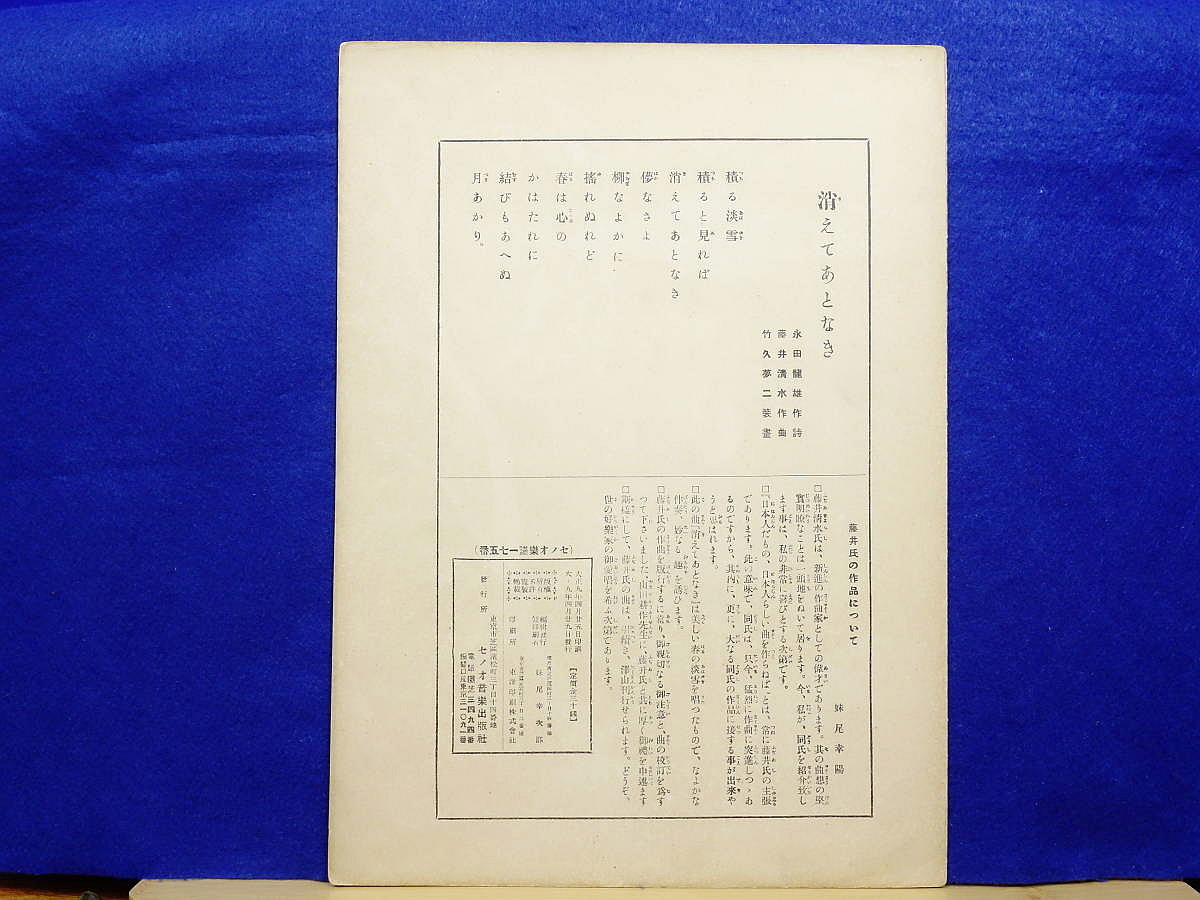 消えてあとなき
永田龍雄作詩
藤井淸水作曲
竹久夢二裝畫
積る淡雪
積ると見れば
消えてあとなき
儚なさよ
柳なよかに
搖れぬれど
春は心の
かはたれに
結びもあへぬ
月あかり。
藤井氏の作品について
妹尾幸陽
□藤井淸水氏は、新進の作曲家としての偉才であります。其の曲想の堅
實明瞭なことは一頭地をぬいて居ります。今、私が、同氏を紹介致し
ます事は、私の非常に喜びとする次第です。
□『日本人だもの、日本人らしい曲を作らねば』とは、常に藤井氏の主張
であります。此の意味で、同氏は、只今、猛烈に作曲に突進しつゝあ
るのですから、其內に、更に、大なる同氏の作品に接する事が出來や
うと思はれます。
□此の曲『消えてあとなき』は美しい春の淡雪を唱つたもので、なよかな
伴奏、妙なる趣を誘ひます。
□藤井氏の作曲を版行するに當り、御親切なる御注意と、曲の校訂を爲す
つて下さいました、山田耕作先生に、藤井氏と共に厚く御禮を申述ます
□斯樣にして、藤井氏の曲は、引續き、澤山刊行せられます。どうぞ、
世の好樂家の御愛唱を希ふ次第であります。
(セノオ樂譜一七五番)
大正九年四月廿五日印刷
大正九年四月廿九日發行
【定價金三十錢】
妹尾幸次郎
印刷所
東洋印刷株式會社
發行所
東京市芝區濱松町三丁目十四番地
セノオ音樂出版社
電話芝三四九四番
振替口座東京三一〇九一番